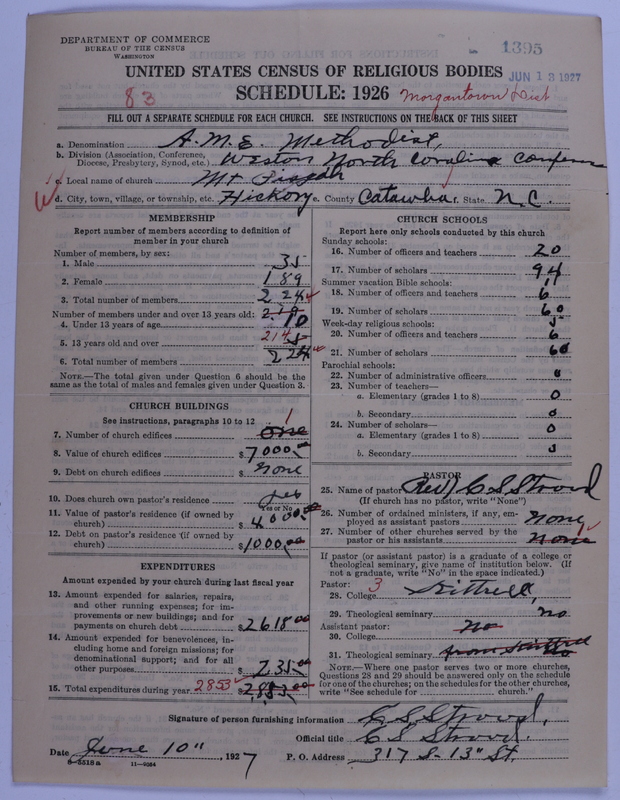 DEPARTMENT OF COMMERCE
BUREAU OF THE CENSUS
WASHINGTON
1395
UNITED STATES CENSUS OF RELIGIOUS BODIES
JUN 13 1927
83
SCHEDULE: 1926
Morgantown Dist
FILL OUT A SEPARATE SCHEDULE FOR EACH CHURCH. SEE INSTRUCTIONS ON THE BACK OF THIS SHEET
a. Denomination A.M.E. Methodist,
b. Division (Association, Conference, Diocese, Presbytery, Synod, etc.) Weston North Carolina Conference
c. Local name of church Mt Pisgah
d. City, town, village, or township, etc. Hickory e. County Catawba f. State N.C.
MEMBERSHIP
Report number of members according to definition of
member in your church
Number of members, by sex:
1. Male 35
2. Female 189
3. Total number of members 224
Number of members under and over 13 years old:
4. Under 13 years of age 10
5. 13 years old and over 214
6. Total number of members 224
NOTE.—The total given under Question 6 should be the
same as the total of males and females given under Question 3.
CHURCH BUILDINGS
See instructions, paragraphs 10 to 12
7. Number of church edifices one 1
8. Value of church edifices $7000.00
9. Debt on church edifices $ none
10. Does church own pastor's residence yes
Yes or No
11. Value of pastor's residence (if owned by
church) $4000.00
12. Debt on pastor's residence (if owned by
church) $1000.00
EXPENDITURES
Amount expended by your church during last fiscal year
13. Amount expended for salaries, repairs,
and other running expenses; for im-
provements or new buildings; and for
payments on church debt $2618.00
14. Amount expended for benevolences, in-
cluding home and foreign missions; for
denominational support; and for all
other purposes $235.00
15. Total expenditures during year 2853 $
CHURCH SCHOOLS
Report here only schools conducted by this church
Sunday schools:
16. Number of officers and teachers 20
17. Number of scholars 94
Summer vacation Bible schools:
18. Number of officers and teachers 6
19. Number of scholars 60
Week-day religious schools: 5
20. Number of officers and teachers 6
21. Number of scholars 60
Parochial schools:
22. Number of administrative officers 0
23. Number of teachers—
a. Elementary (grades 1 to 8) 0
b. Secondary 0
24. Number of scholars—
a. Elementary (grades 1 to 8) 0
b. Secondary
PASTOR
25. Name of pastor Rev C S Stroud
(If church has no pastor, write "None")
26. Number of ordained ministers, if any, em-
ployed as assistant pastors none
27. Number of other churches served by the
pastor or his assistants none 1
If pastor (or assistant pastor) is a graduate of a college or
theological seminary, give name of institution below. (If
not a graduate, write "No" in the space indicated.)
Pastor: 3
28. College Kittrell,
29. Theological seminary no
Assistant pastor: No
30. College
31. Theological seminary from
NOTE.—Where one pastor serves two or more churches,
Questions 28 and 29 should be answered only on the schedule
for one of the churches; on the schedules for the other churches,
write "See schedule for church."
Signature of person furnishing information C S Stroud,
Official title C S Stroud.
Date June 10", 1927 P. O. Address 317 S- 13" St.
8-5518a 11-9064